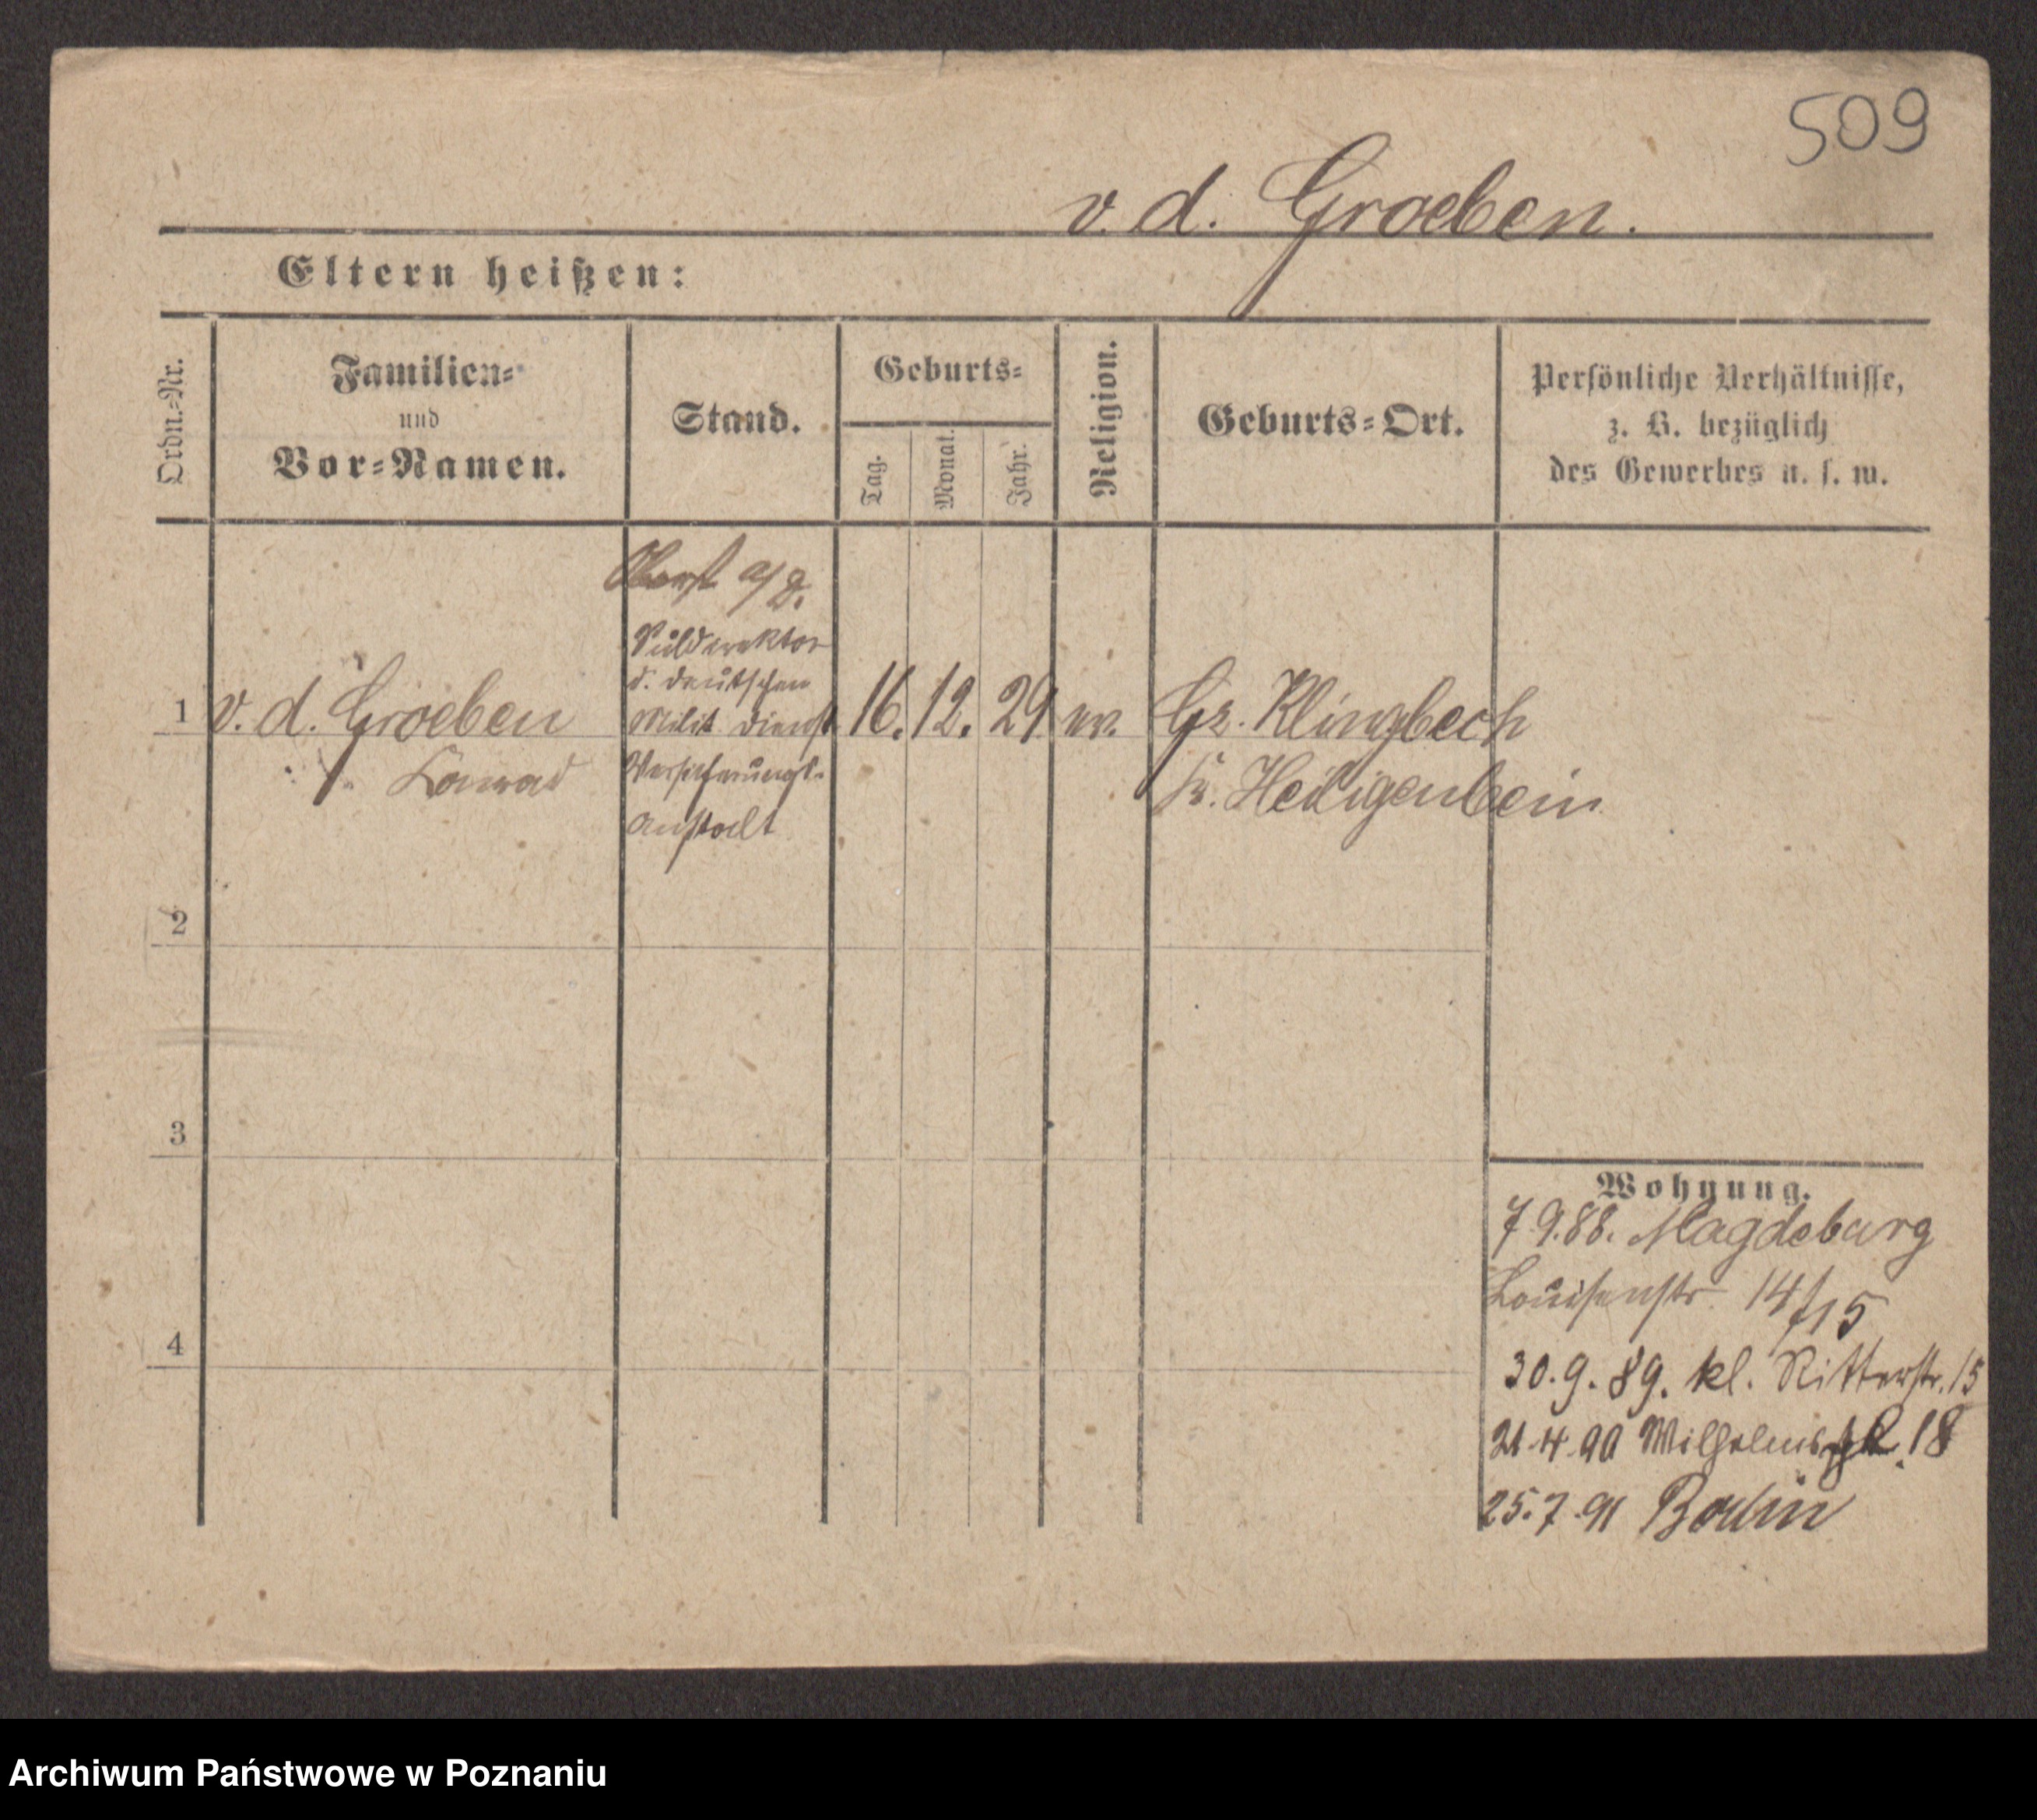 509
v. d. Groeben.
Eltern heißen:
Ordn.-Nr.
Familien-
und
Vor-Namen.
Stand.
Geburts-
Tag.
Monat.
Jahr.
Religion.
Geburts-Ort.
Persönliche Verhältnisse,
z. B. bezüglich
des Gewerbes u. s. w.
Oberst a/D.
d. deutschen
1 v. d. Groeben Milit. Dienst 16. 12. 29 ev. Gr. Klingbeck
Konrad Versicherungs-
Kr. Heiligenbein
Anstalt
2
3
4
Wohnung.
7.9.88. Magdeburg
Louisenstr. 14/15
30.9.89. kl. Ritterstr. 15
21.4.90 Wilhelms 18
25.7.91 Berlin
Archiwum Państwowe w Poznaniu